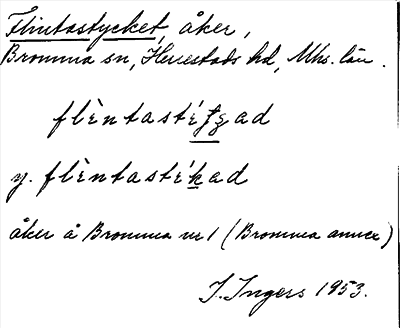 Flintastycket, åker,
Bromma sn, Herrestads hd, Mhs. län.
flèntastéʃʒad
y. flèntastékad
åker å Bromma nr 1 (Bromma annex)
I. Ingers 1953.